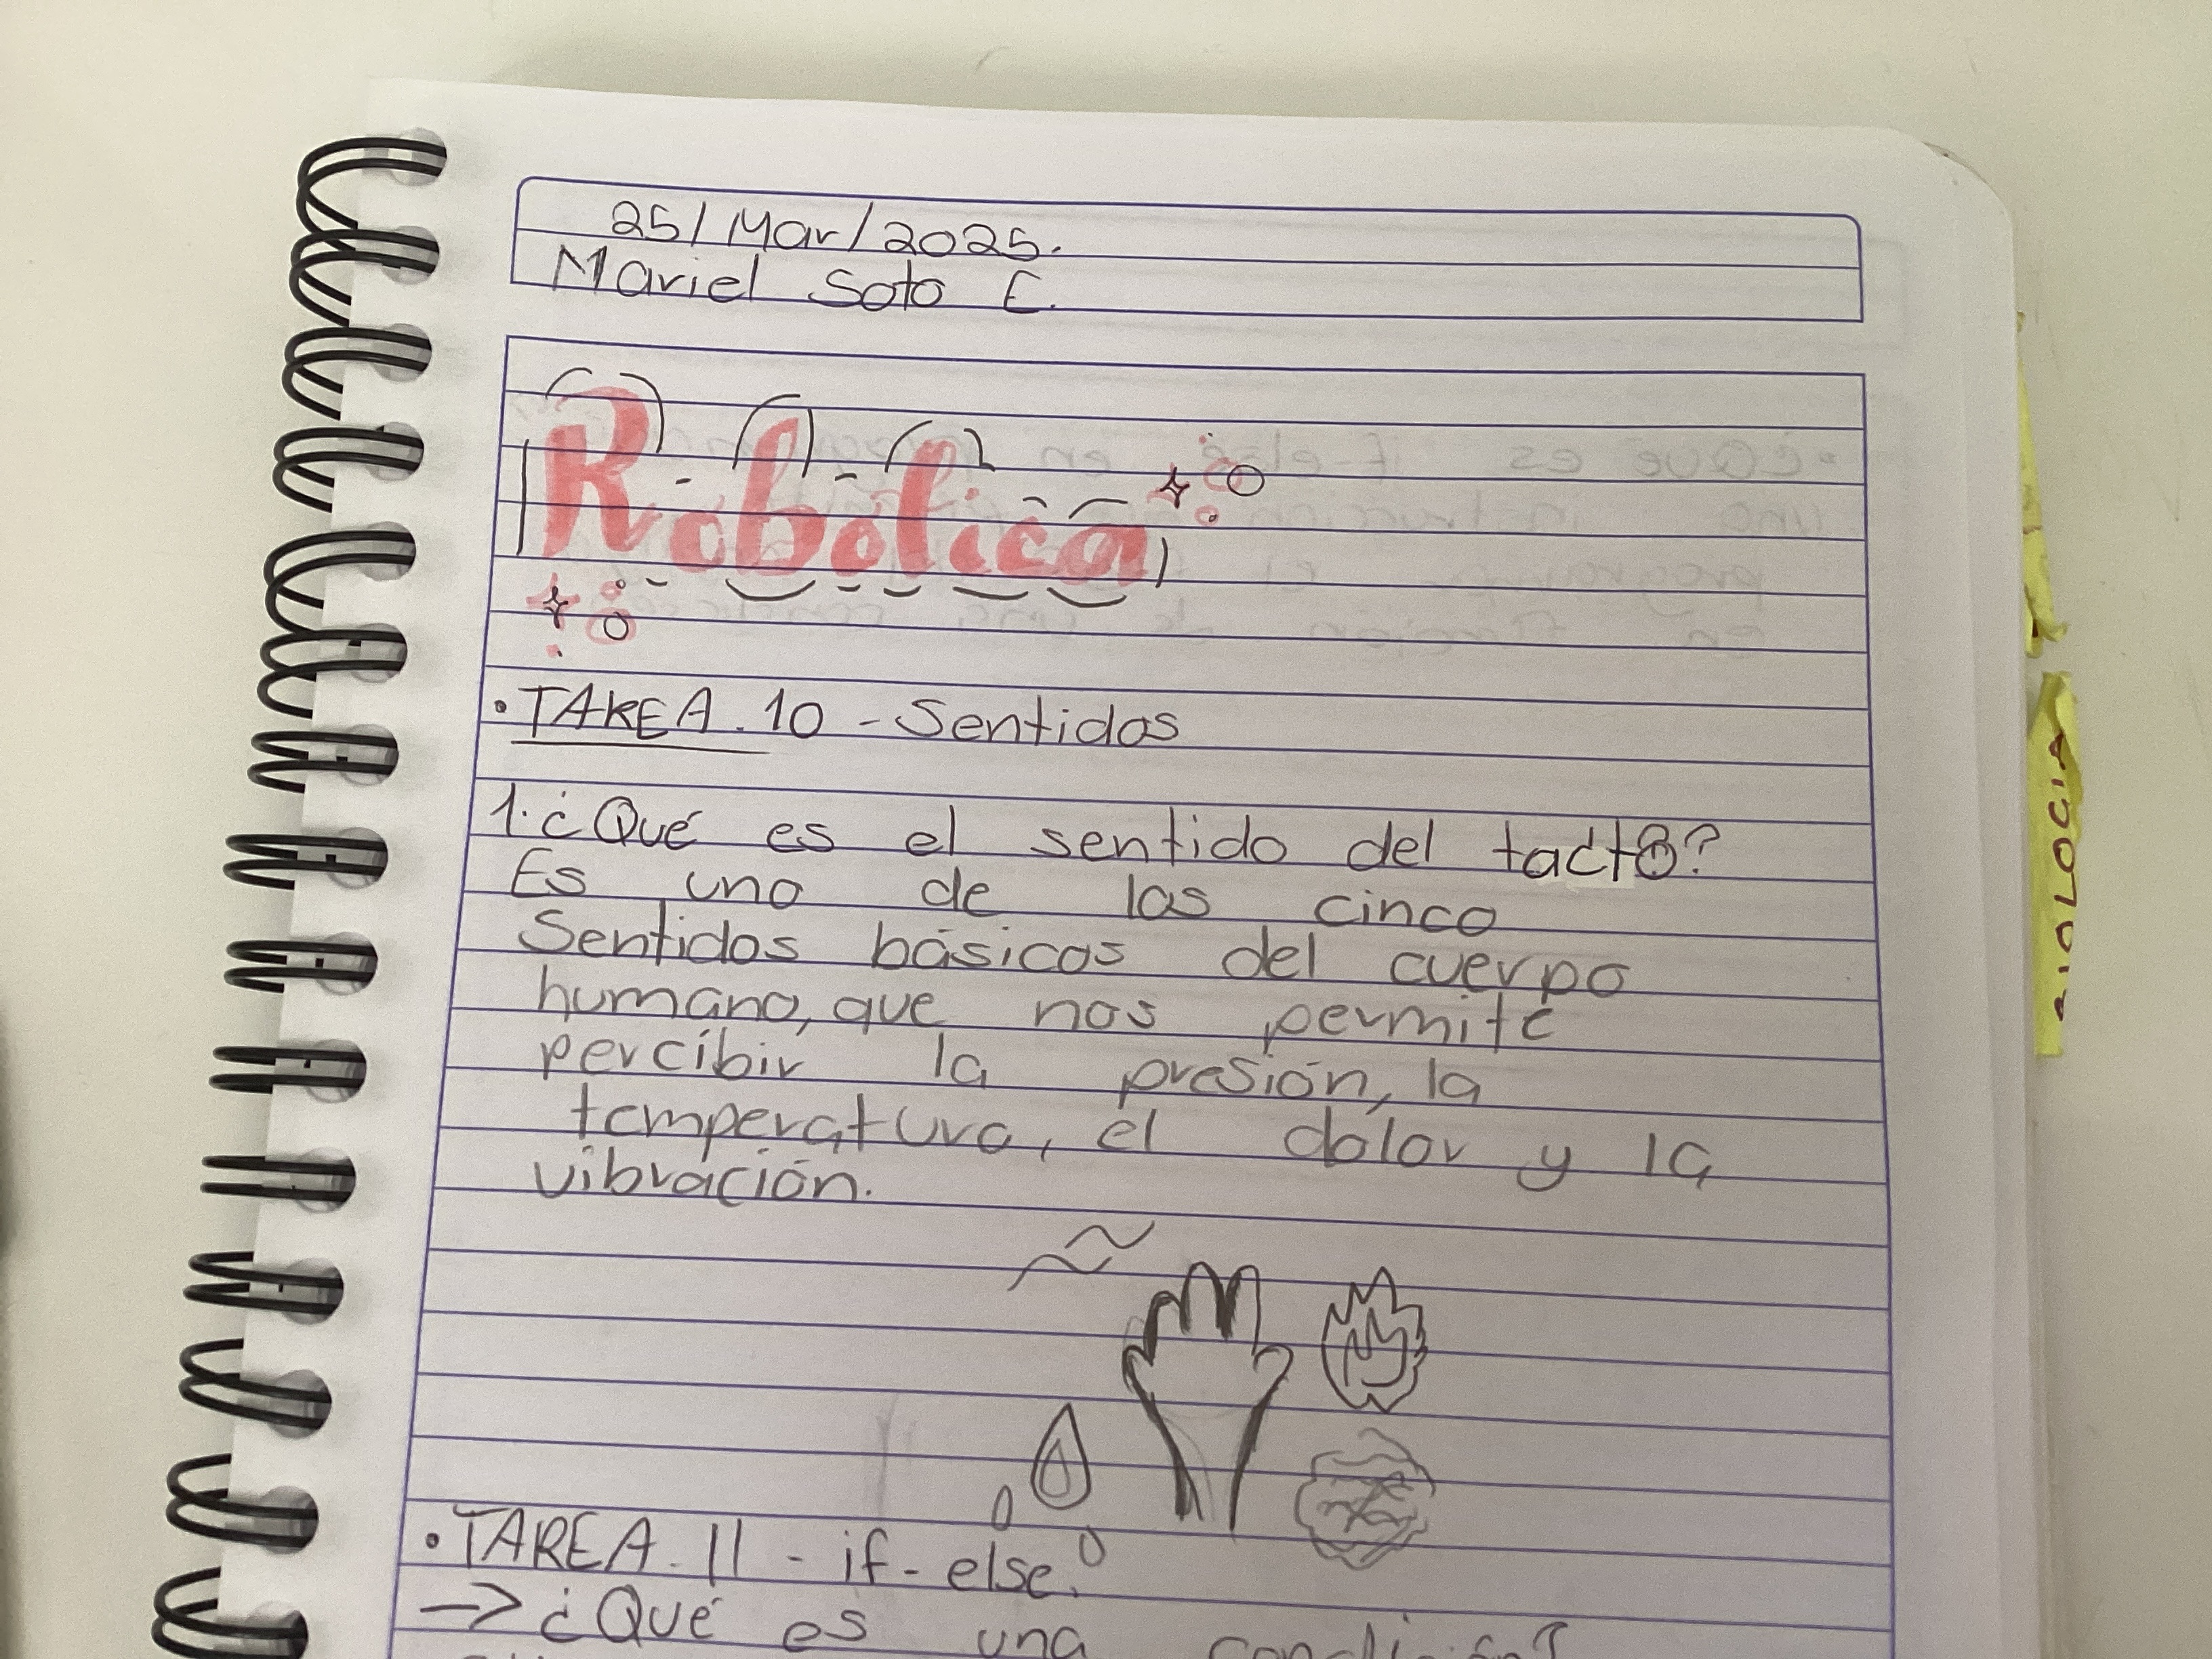 25/Mar/2025.
Mariel Soto E.
Robótica
• TAREA. 10 - Sentidos
1. ¿Qué es el sentido del tacto?
Es uno de los cinco
Sentidos básicos del cuerpo
humano, que nos permite
percibir la presión, la
temperatura, el dolor y la
vibración.
• TAREA. 11 - if-else.
→ ¿Qué es una condición?
BIOLOGIA